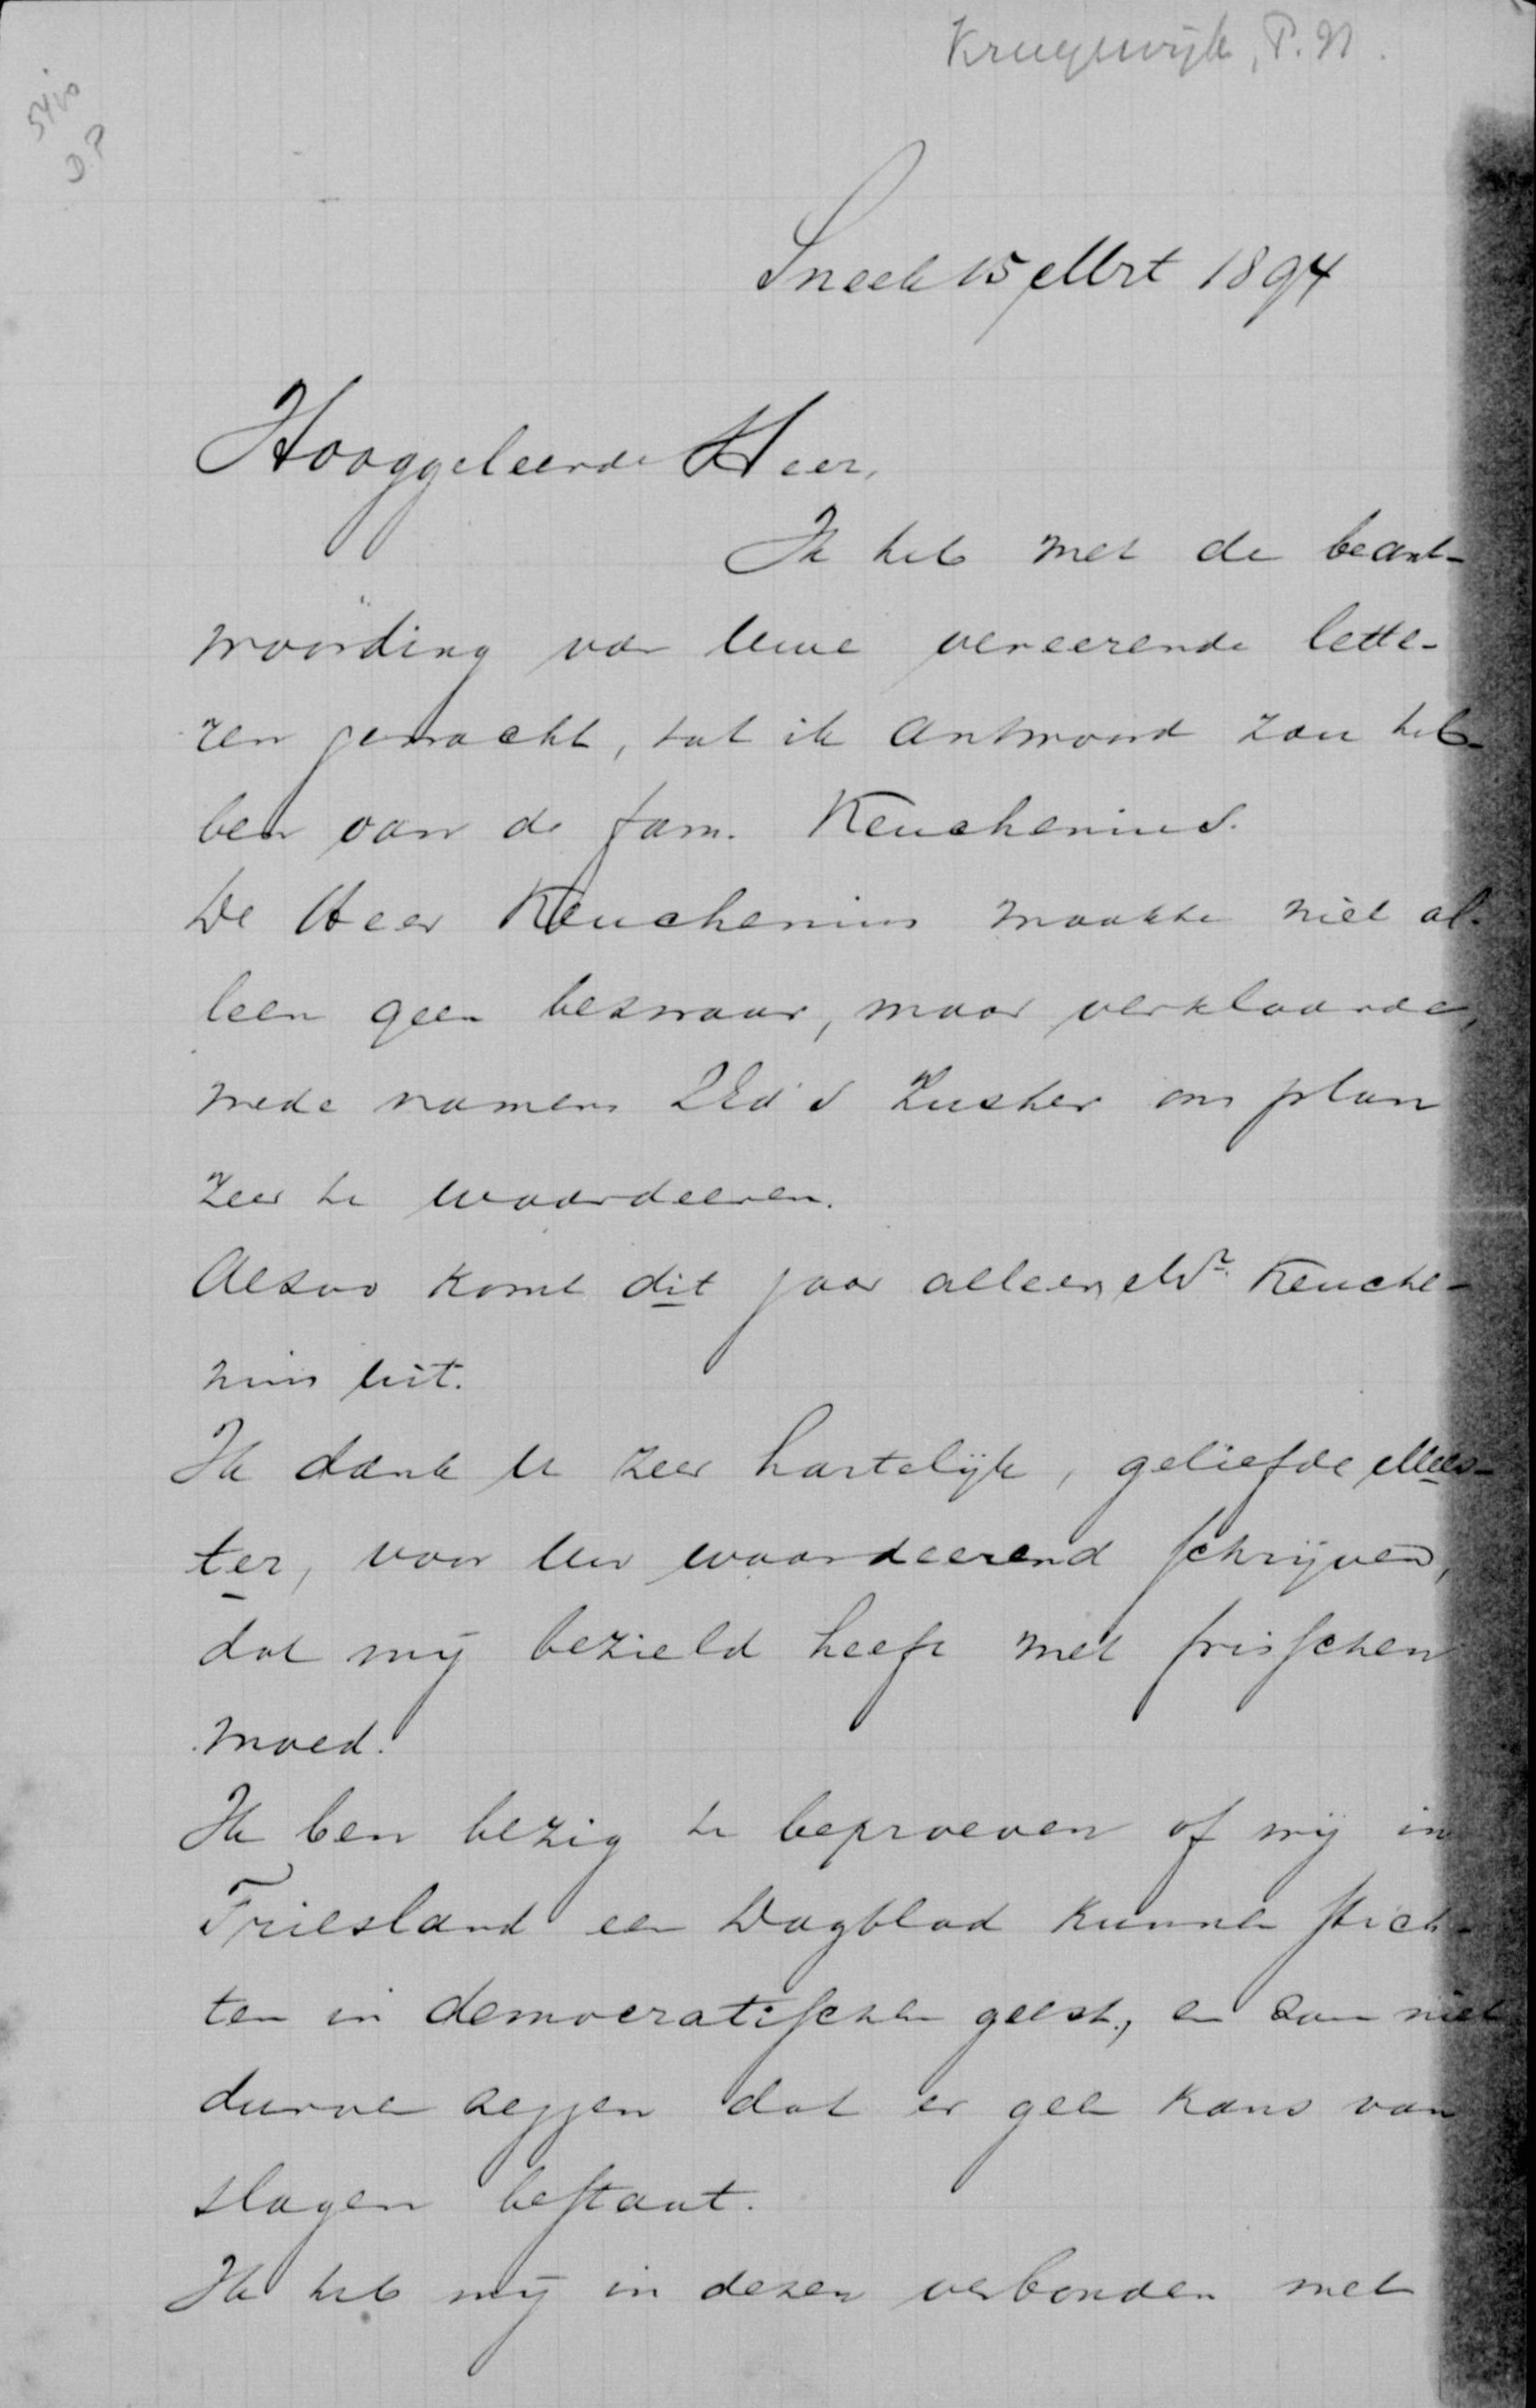 Kruyswijk, P. N.
5410
D.P
Sneek 15 Mrt 1894
Hooggeleerde Heer,
Ik heb met de beant-
woording van Uwe vereerende lette-
ren gewacht, tot ik antwoord zou heb-
ben van de fam. Keuchenius.
De Heer Keuchenius maakte niet al-
leen geen bezwaar, maar verklaarde,
mede namens ZEd's Zuster ons plan
zeer te waardeeren.
Alzoo komt dit jaar alleen Mr. Keuche-
nius uit.
Ik dank U zeer hartelijk, geliefde Mees-
ter, voor Uw waardeerend schrijven,
dat mij bezield heeft met frisschen
moed.
Ik ben bezig te beproeven of wij in
Friesland een Dagblad kunnen stich-
ten in democratischen geest, en zou niet
durven zeggen dat er geen kans van
slagen bestaat.
Ik heb mij in dezen verbonden met